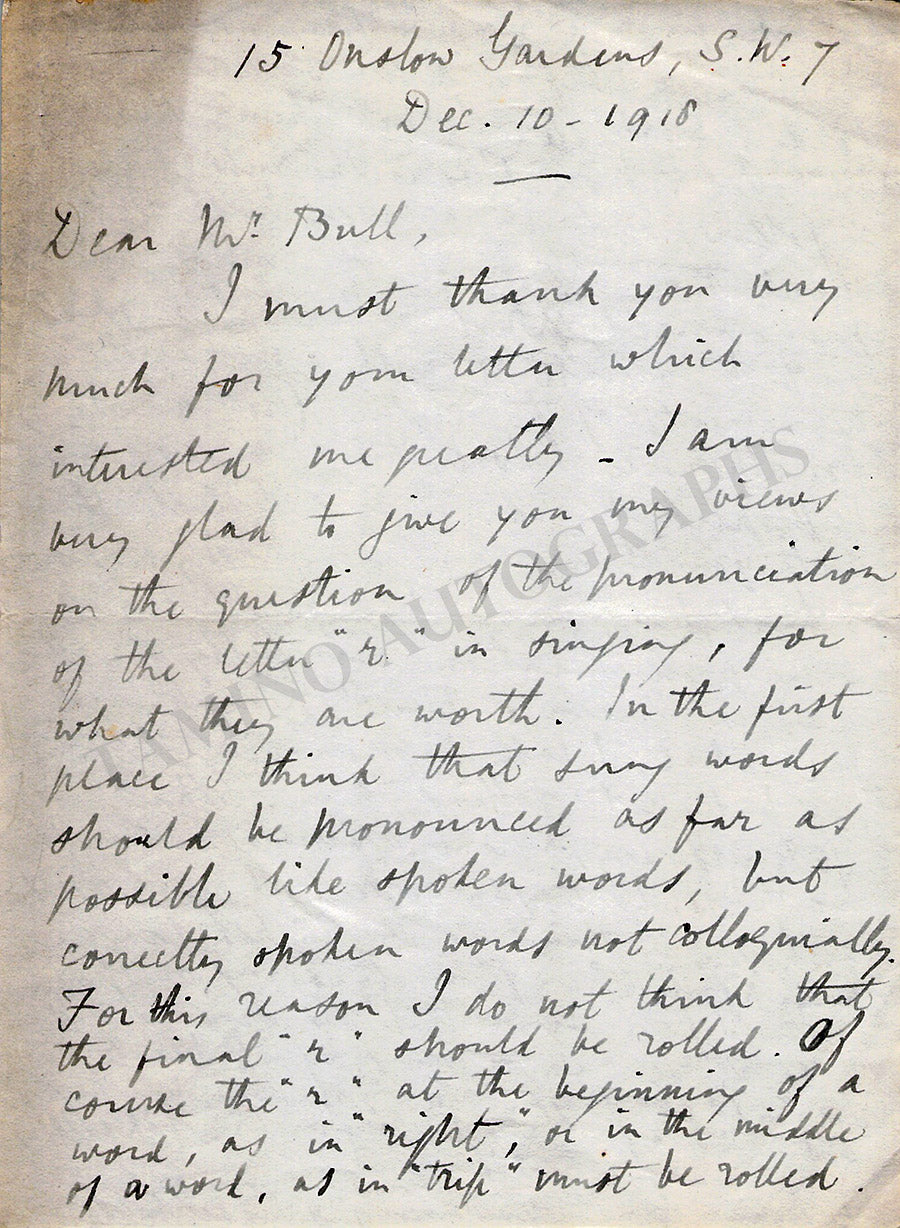 15 Onslow Gardens, S.W. 7
Dec. 10 - 1918
Dear Mr. Bull,
I must thank you very
much for your letter which
interested me greatly - I am
very glad to give you my views
on the question of the pronunciation
of the letter "r" in singing, for
what they are worth. In the first
place I think that sung words
should be pronounced as far as
possible like spoken words, but
correctly spoken words not colloquially.
For this reason I do not think that
the final "r" should be rolled. Of
course the "r" at the beginning of a
word, as in "right", or in the middle
of a word, as in "trip" must be rolled.
TAMINO AUTOGRAPHS